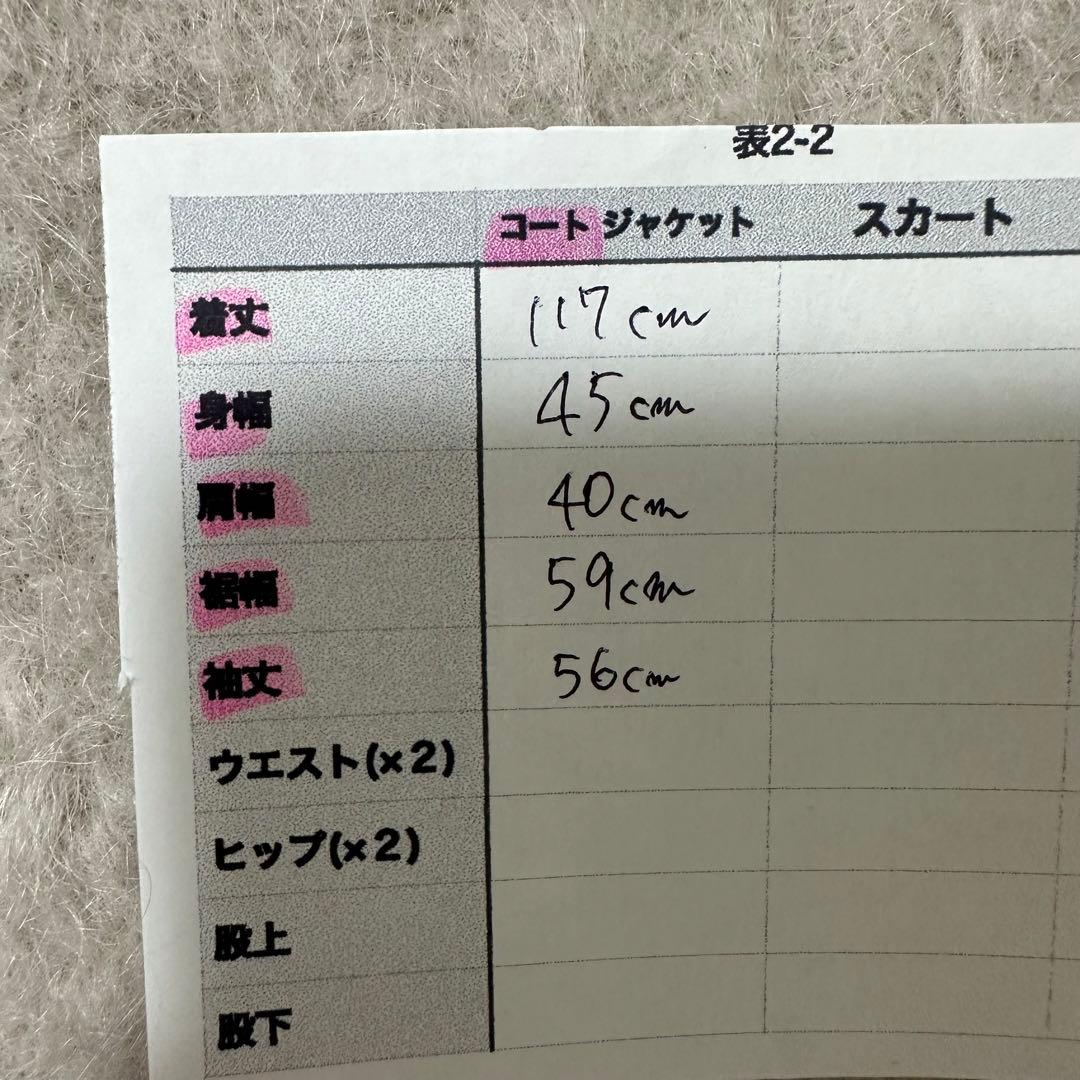 表2-2
コート ジャケット スカート
着丈 117cm
身幅 45cm
肩幅 40cm
裾幅 59cm
袖丈 56cm
ウエスト(×2)
ヒップ(×2)
股上
股下